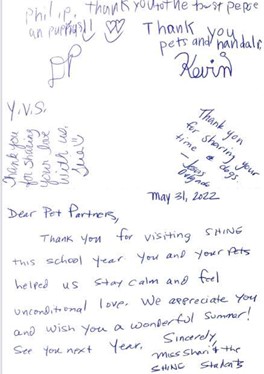 Philip, thank you to the
an puppies!!
Thank you
pets and
Kevin
Y.V.S.
Thank you
for sharing
your
with us.
Thank you
for sharing your
time & dogs
May 31, 2022
Dear Pet Partners,
Thank you for visiting SHINE
this school year You and your pets
helped us stay calm and feel
unconditional love. We appreciate you
and wish you a wonderful summer!
See you next year. Sincerely,
Miss Shari & the
SHINE Students